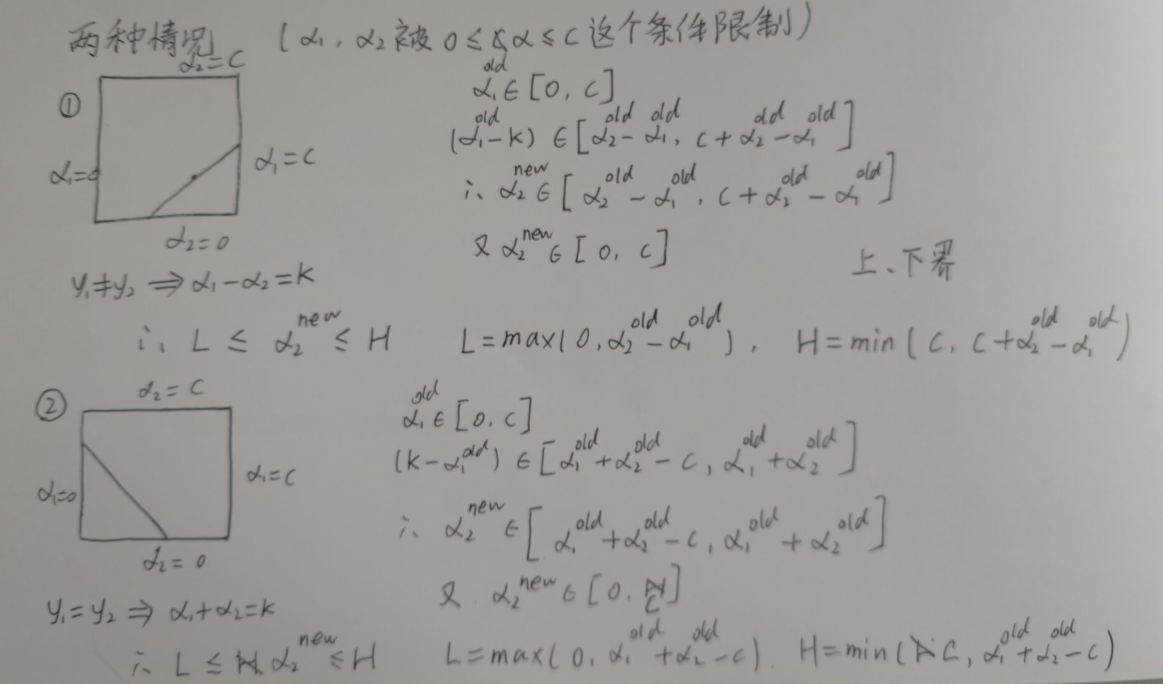 两种情况 (α₁, α₂被 0≤α≤C 这个条件限制)
① α₂=C
α₁=0
α₁=C
α₂=0
y₁≠y₂ ⇒ α₁-α₂=k
α₁^old ∈ [0, C]
(α₁^old-k) ∈ [α₂^old-α₁^old, C+α₂^old-α₁^old]
∴ α₂^new ∈ [α₂^old-α₁^old, C+α₂^old-α₁^old]
又 α₂^new ∈ [0, C]
上、下界
∴ L ≤ α₂^new ≤ H L=max(0, α₂^old-α₁^old), H=min(C, C+α₂^old-α₁^old)
② α₂=C
α₁=0
α₁=C
α₂=0
y₁=y₂ ⇒ α₁+α₂=k
α₁^old ∈ [0, C]
(k-α₁^old) ∈ [α₁^old+α₂^old-C, α₁^old+α₂^old]
∴ α₂^new ∈ [α₁^old+α₂^old-C, α₁^old+α₂^old]
又 α₂^new ∈ [0, C]
∴ L ≤ α₂^new ≤ H L=max(0, α₁^old+α₂^old-C), H=min(C, α₁^old+α₂^old-C)